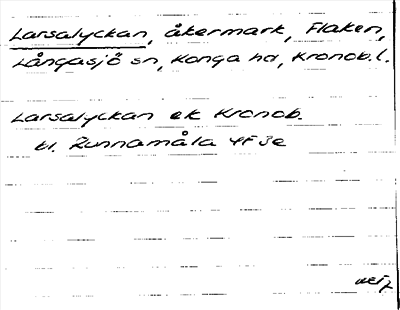 Larsalyckan, åkermark, Flaken,
Långasjö sn, Konga hd, Kronob. l.
Larsalyckan ek Kronob.
bl. Runnamåla 4F 3e